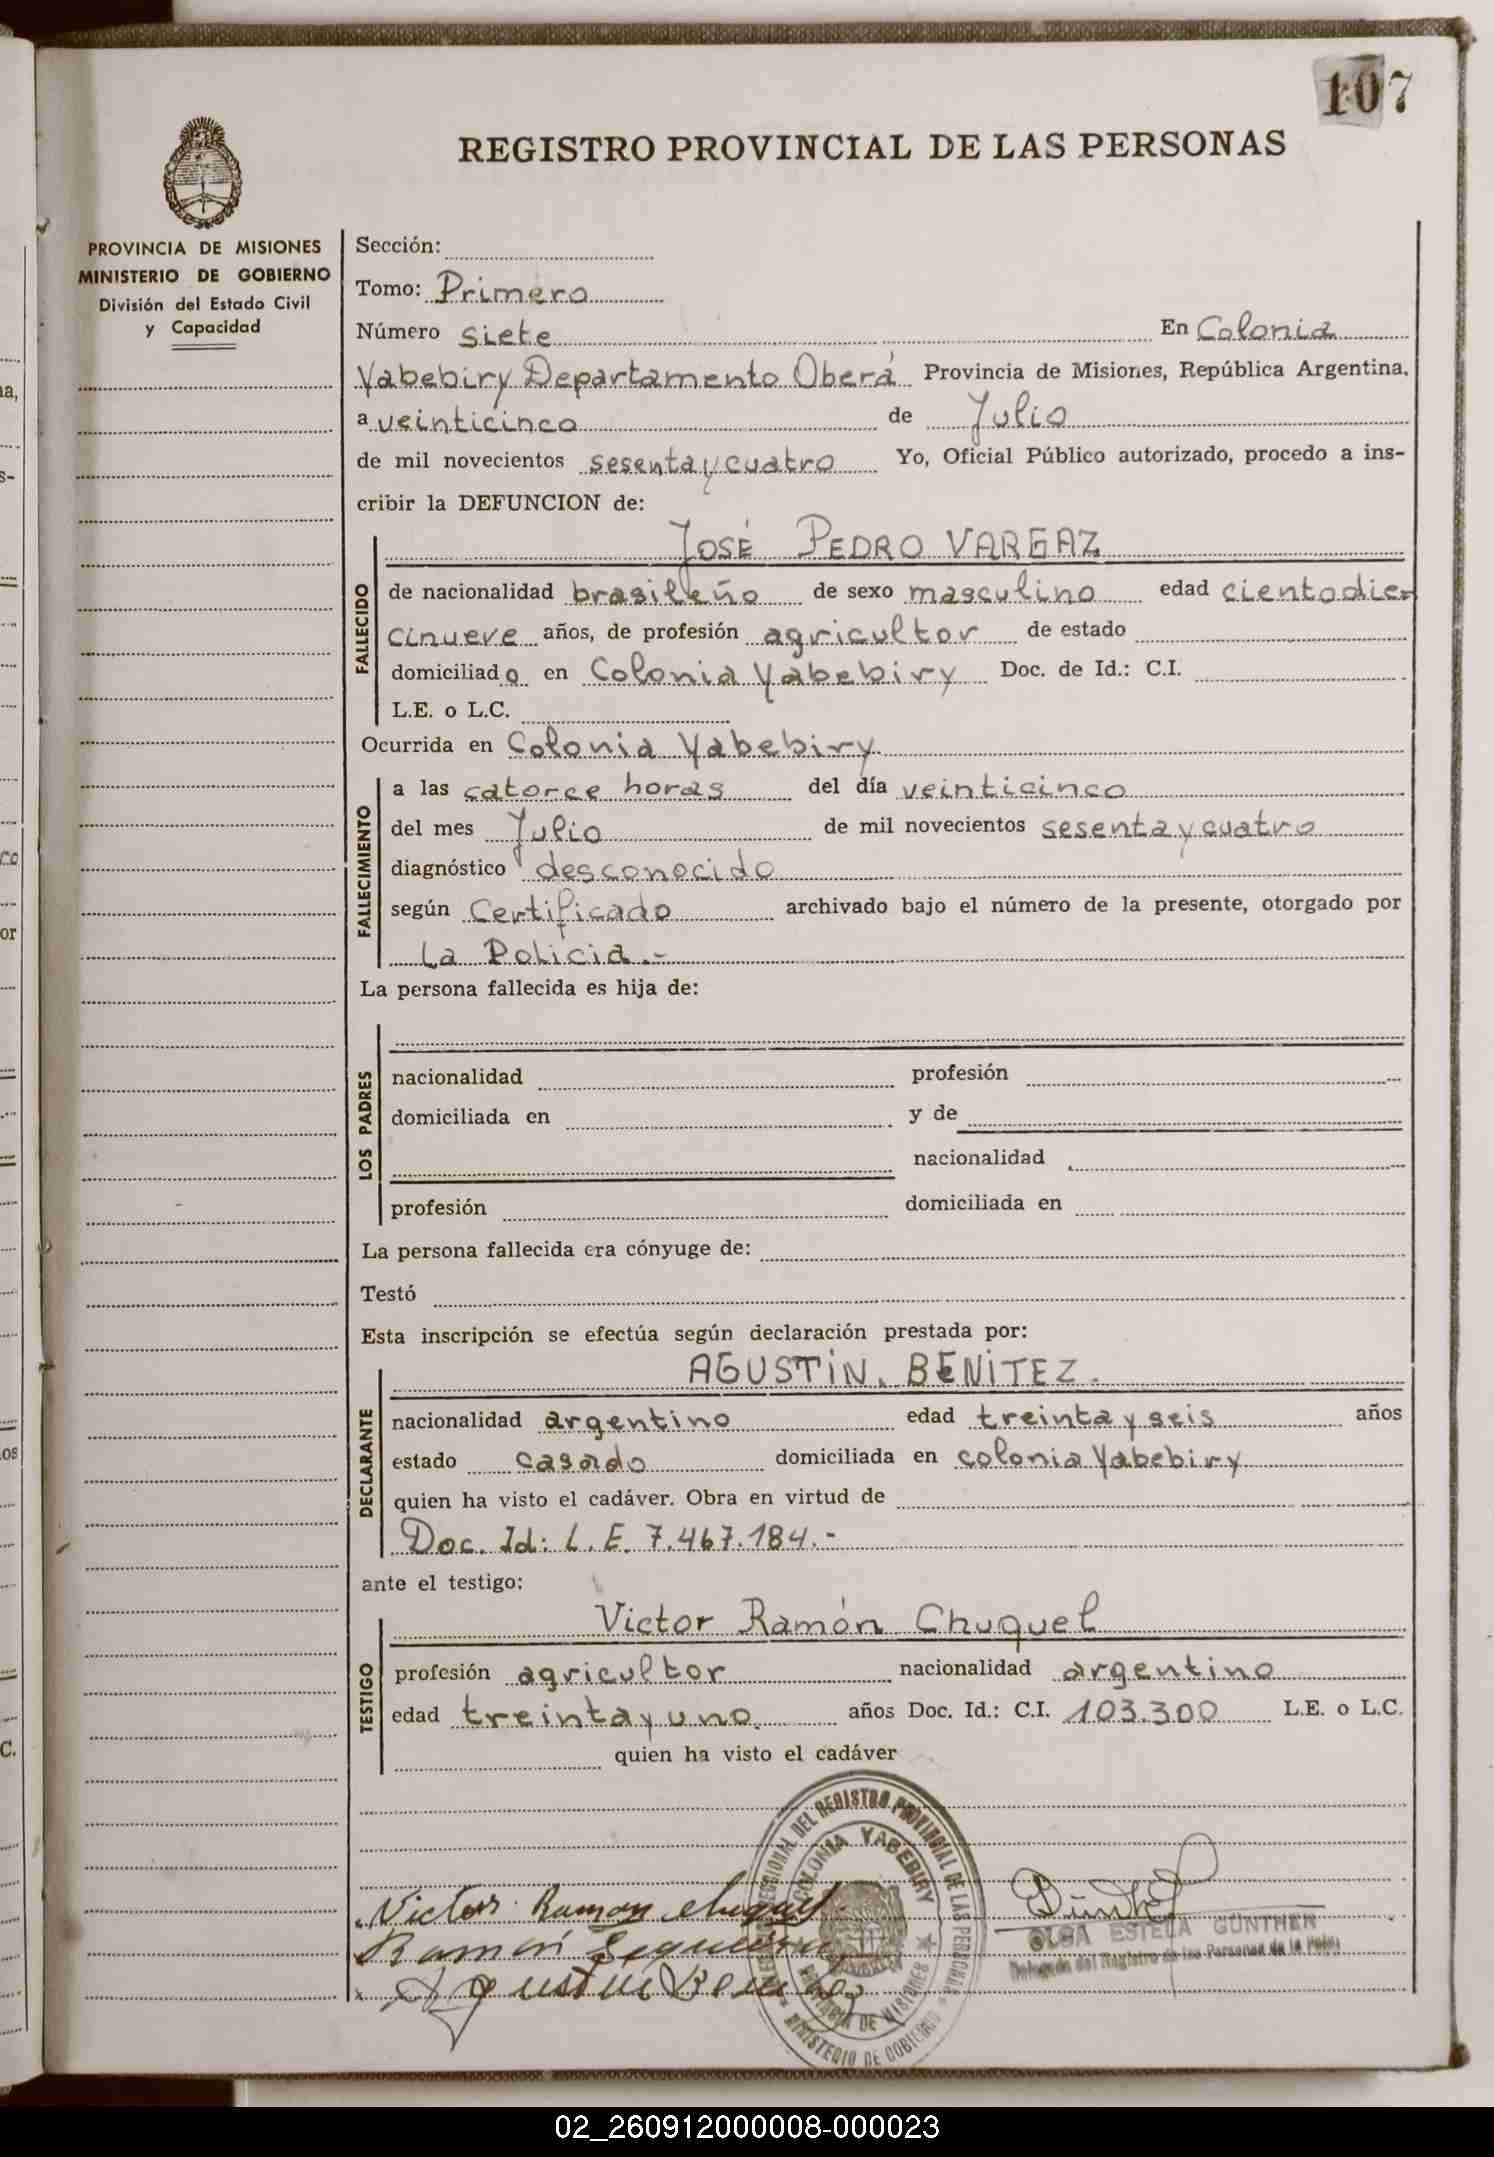 107
REGISTRO PROVINCIAL DE LAS PERSONAS
PROVINCIA DE MISIONES
MINISTERIO DE GOBIERNO
División del Estado Civil
y Capacidad
Sección:
Tomo: Primero
Número siete En Colonia
Yabebiry Departamento Oberá Provincia de Misiones, República Argentina,
a veinticinco de Julio
de mil novecientos sesenta y cuatro Yo, Oficial Público autorizado, procedo a ins-
cribir la DEFUNCION de:
JOSÉ PEDRO VARGAZ
FALLECIDO
de nacionalidad brasileño de sexo masculino edad cientodiez
cinueve años, de profesión agricultor de estado
domiciliado en Colonia Yabebiry Doc. de Id.: C.I.
L.E. o L.C.
Ocurrida en Colonia Yabebiry
FALLECIMIENTO
a las catorce horas del día veinticinco
del mes Julio de mil novecientos sesenta y cuatro
diagnóstico desconocido
según Certificado archivado bajo el número de la presente, otorgado por
La Policia.-
La persona fallecida es hija de:
LOS PADRES
nacionalidad profesión
domiciliada en y de
nacionalidad
profesión domiciliada en
La persona fallecida era cónyuge de:
Testó
Esta inscripción se efectúa según declaración prestada por:
AGUSTÍN. BENÍTEZ.
DECLARANTE
nacionalidad argentino edad treinta y seis años
estado casado domiciliada en colonia Yabebiry
quien ha visto el cadáver. Obra en virtud de
Doc. Id: L.E. 7.467.184.-
ante el testigo:
Victor Ramón Chuquel
TESTIGO
profesión agricultor nacionalidad argentino
edad treinta y uno. años Doc. Id.: C.I. 103.300 L.E. o L.C.
quien ha visto el cadáver
DEL REGISTRO PROVINCIAL DE LAS PERSONAS
COLONIA YABEBIRY
PROVINCIA DE MISIONES
MINISTERIO DE GOBIERNO
Victor Ramon Chuquel
Ramón
Agustin Benitez
OLGA ESTELA GÜNTHER
Delegada del Registro de las Personas de la
ha,
s-
co
or
os
C.
02_260912000008-000023